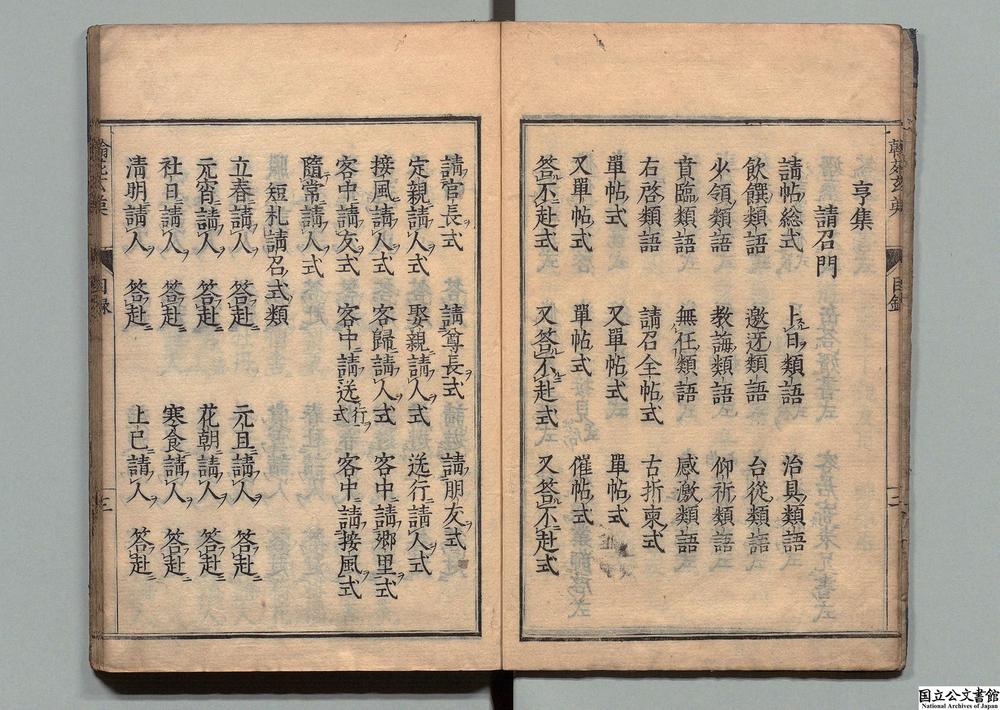 亨集
請召門
請帖総式　上旨類語　治具類語
飲饌類語　邀迓類語　台從類語
少領類語　教誨類語　仰祈類語
賁臨類語　無任類語　感激類語
右啓類語　請召全帖式　古折柬式
單帖式　又單帖式　單帖式
又單帖式　單帖式　催帖式
答不赴式　又答不赴式　又答不赴式
請官長式　請尊長式　請朋友式
定親請人式　娶親請人式　送行請人式
接風請人式　客歸請人式　客中請鄉里式
客中請友式　客中請送行式　客中請接風式
隨常請人式
短札請召式類
立春請人　答赴　元旦請人　答赴
元宵請人　答赴　花朝請人　答赴
社日請人　答赴　寒食請人　答赴
清明請人　答赴　上巳請人　答赴
目録
三
国立公文書館
National Archives of Japan